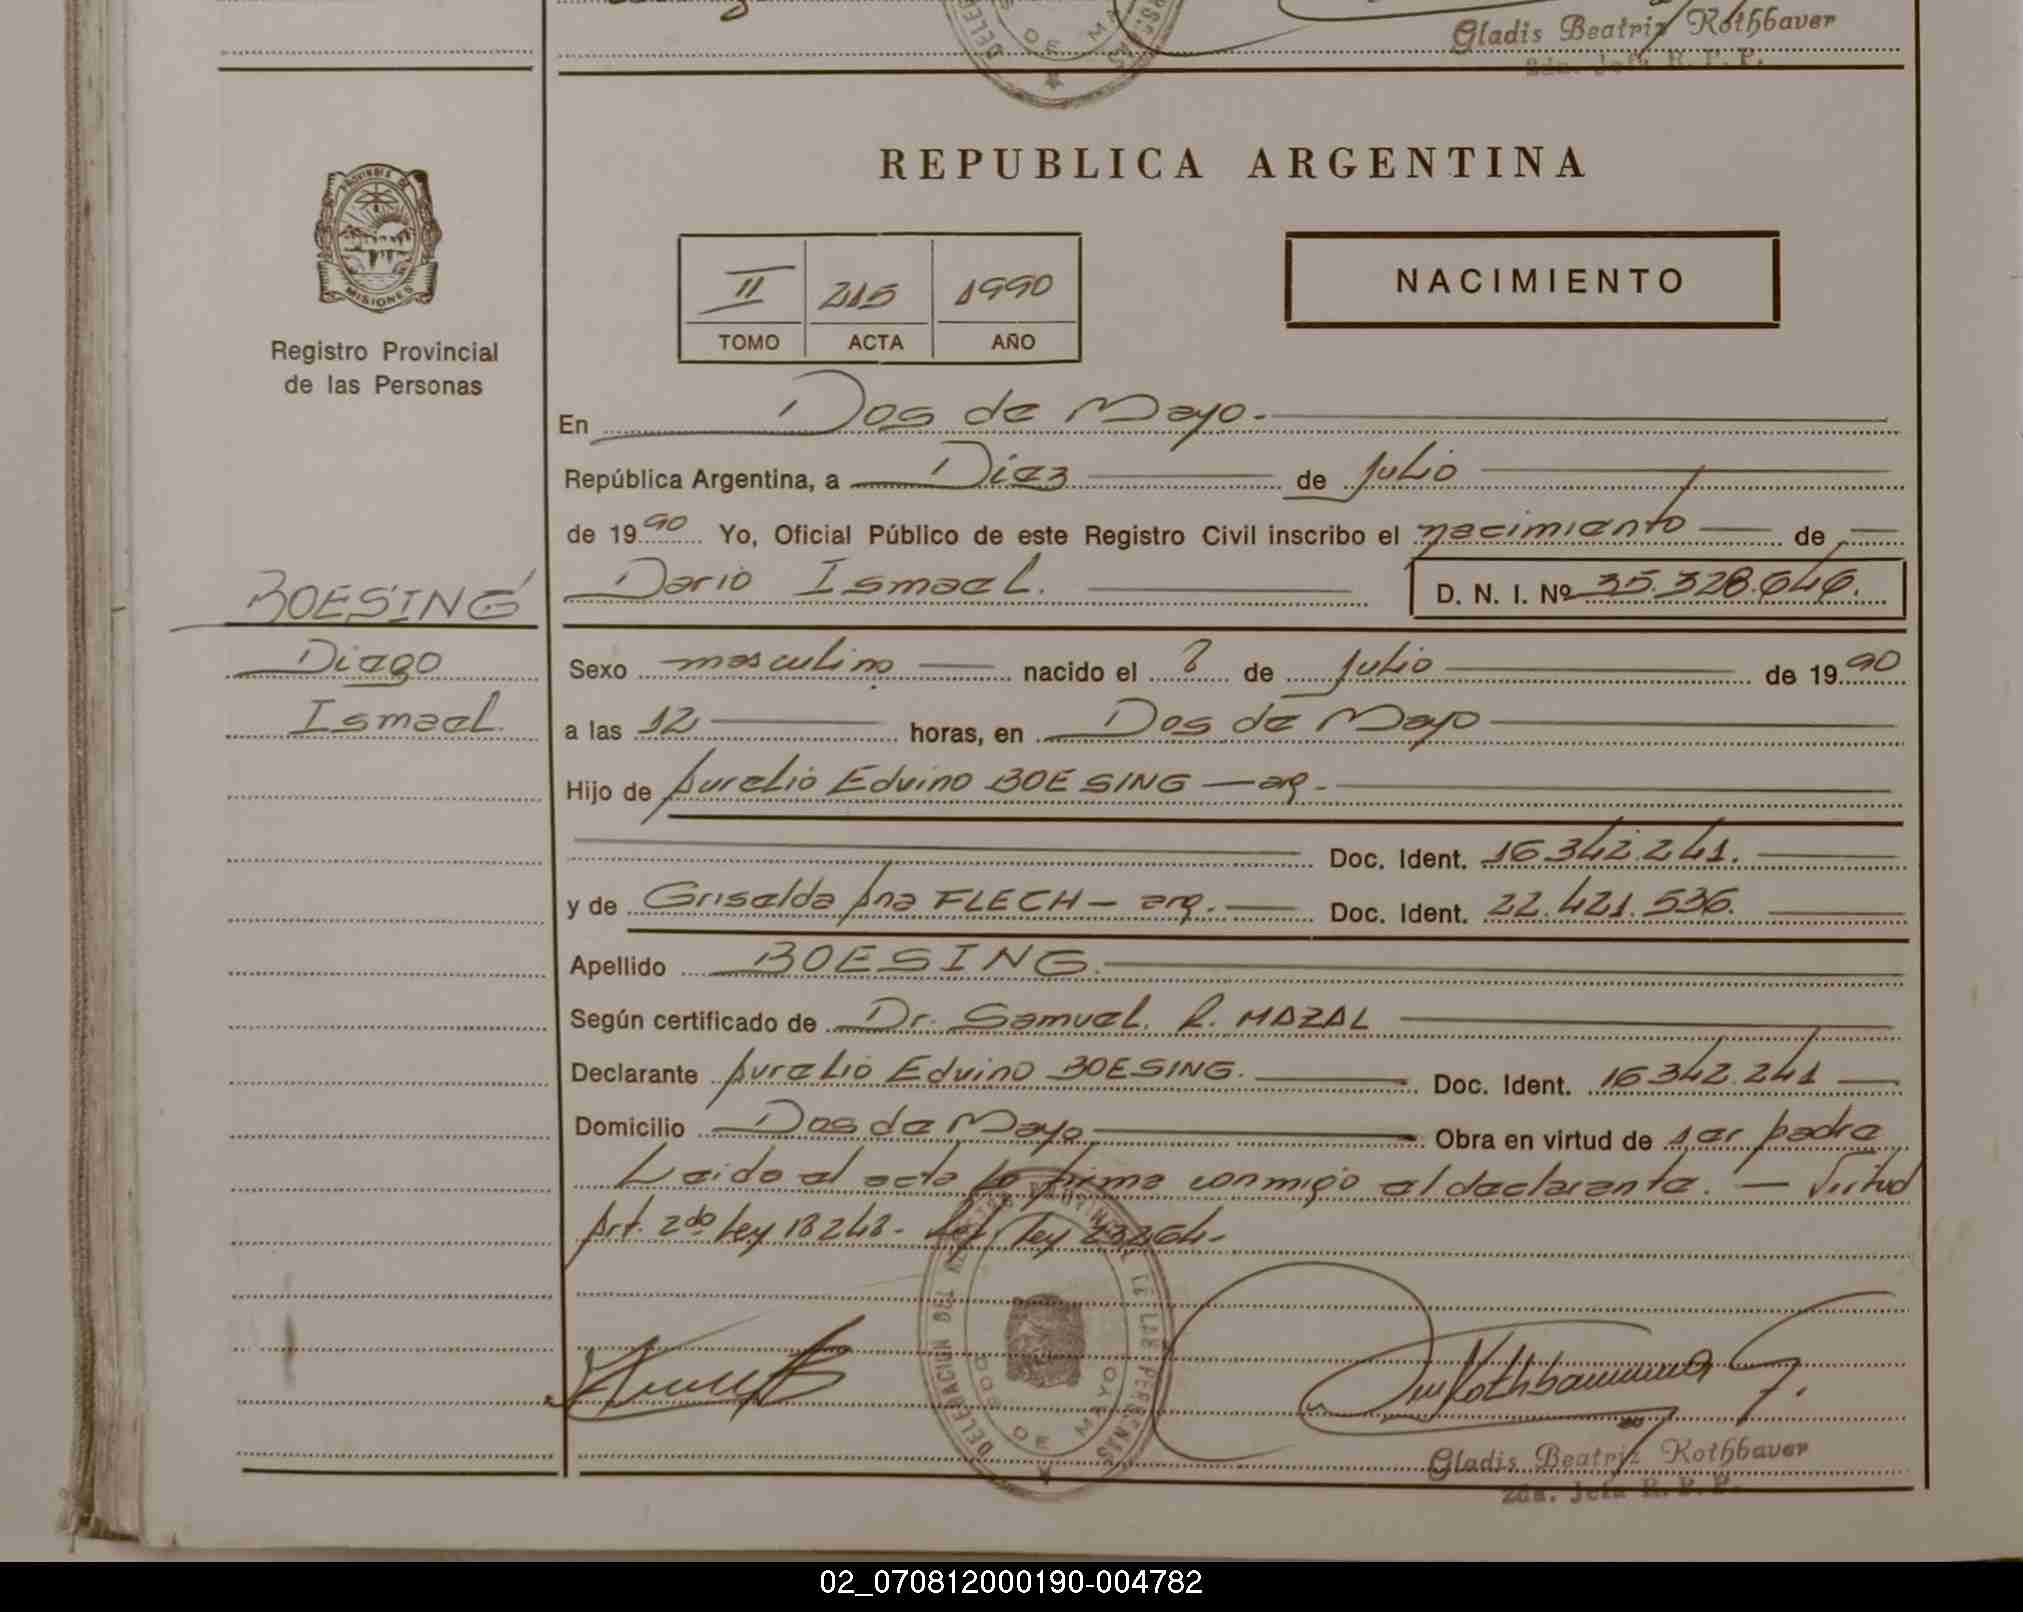 Gladis Beatriz Rothbaver
2da. Jefa R. P. P.
REPUBLICA ARGENTINA
PROVINCIA DE
MISIONES
Registro Provincial
de las Personas
II 215 1990
TOMO ACTA AÑO
NACIMIENTO
En Dos de Mayo.
República Argentina, a Diez de Julio
de 1990 Yo, Oficial Público de este Registro Civil inscribo el nacimiento de
Dario Ismael. D. N. I. Nº 35.328.646.
BOESING
Diego
Ismael.
Sexo masculino nacido el de Julio de 1990
a las 12 horas, en Dos de Mayo
Hijo de Aurelio Edvino BOESING — arg.
Doc. Ident. 16.342.241.
y de Griselda Ana FLECH — arg. Doc. Ident. 22.421.536.
Apellido BOESING.
Según certificado de Dr. Samuel. R. MAZAL
Declarante Aurelio Edvino BOESING. Doc. Ident. 16.342.241
Domicilio Dos de Mayo Obra en virtud de ser padre
Leido el acta la firma conmigo el declarante. — Virtud
Art. 2do Ley 18248. Ley 23264.
DOS DE MAYO
Gladis Beatriz Rothbaver
2da. Jefa R. P. P.
02_070812000190-004782